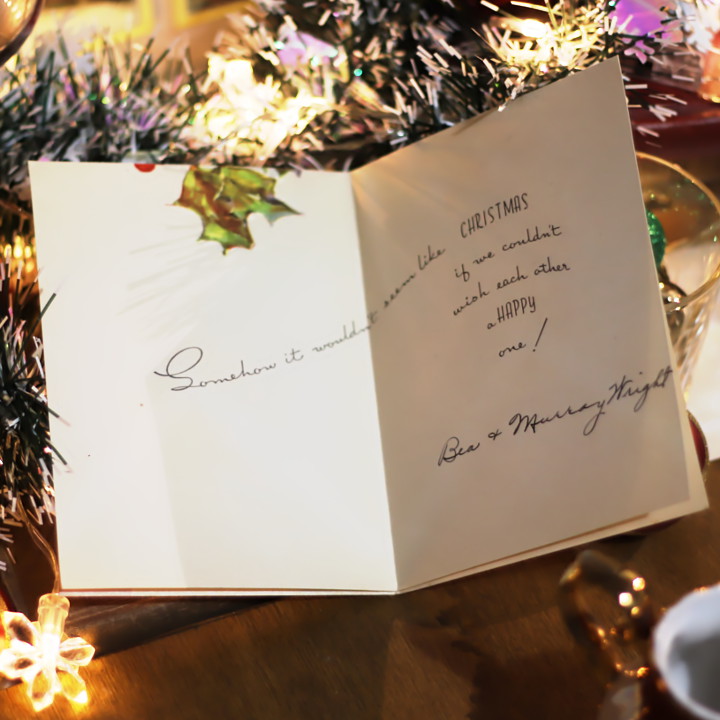 Somehow it wouldn't seem like CHRISTMAS
if we couldn't
wish each other
a HAPPY
one!
Bea & Murray Wright